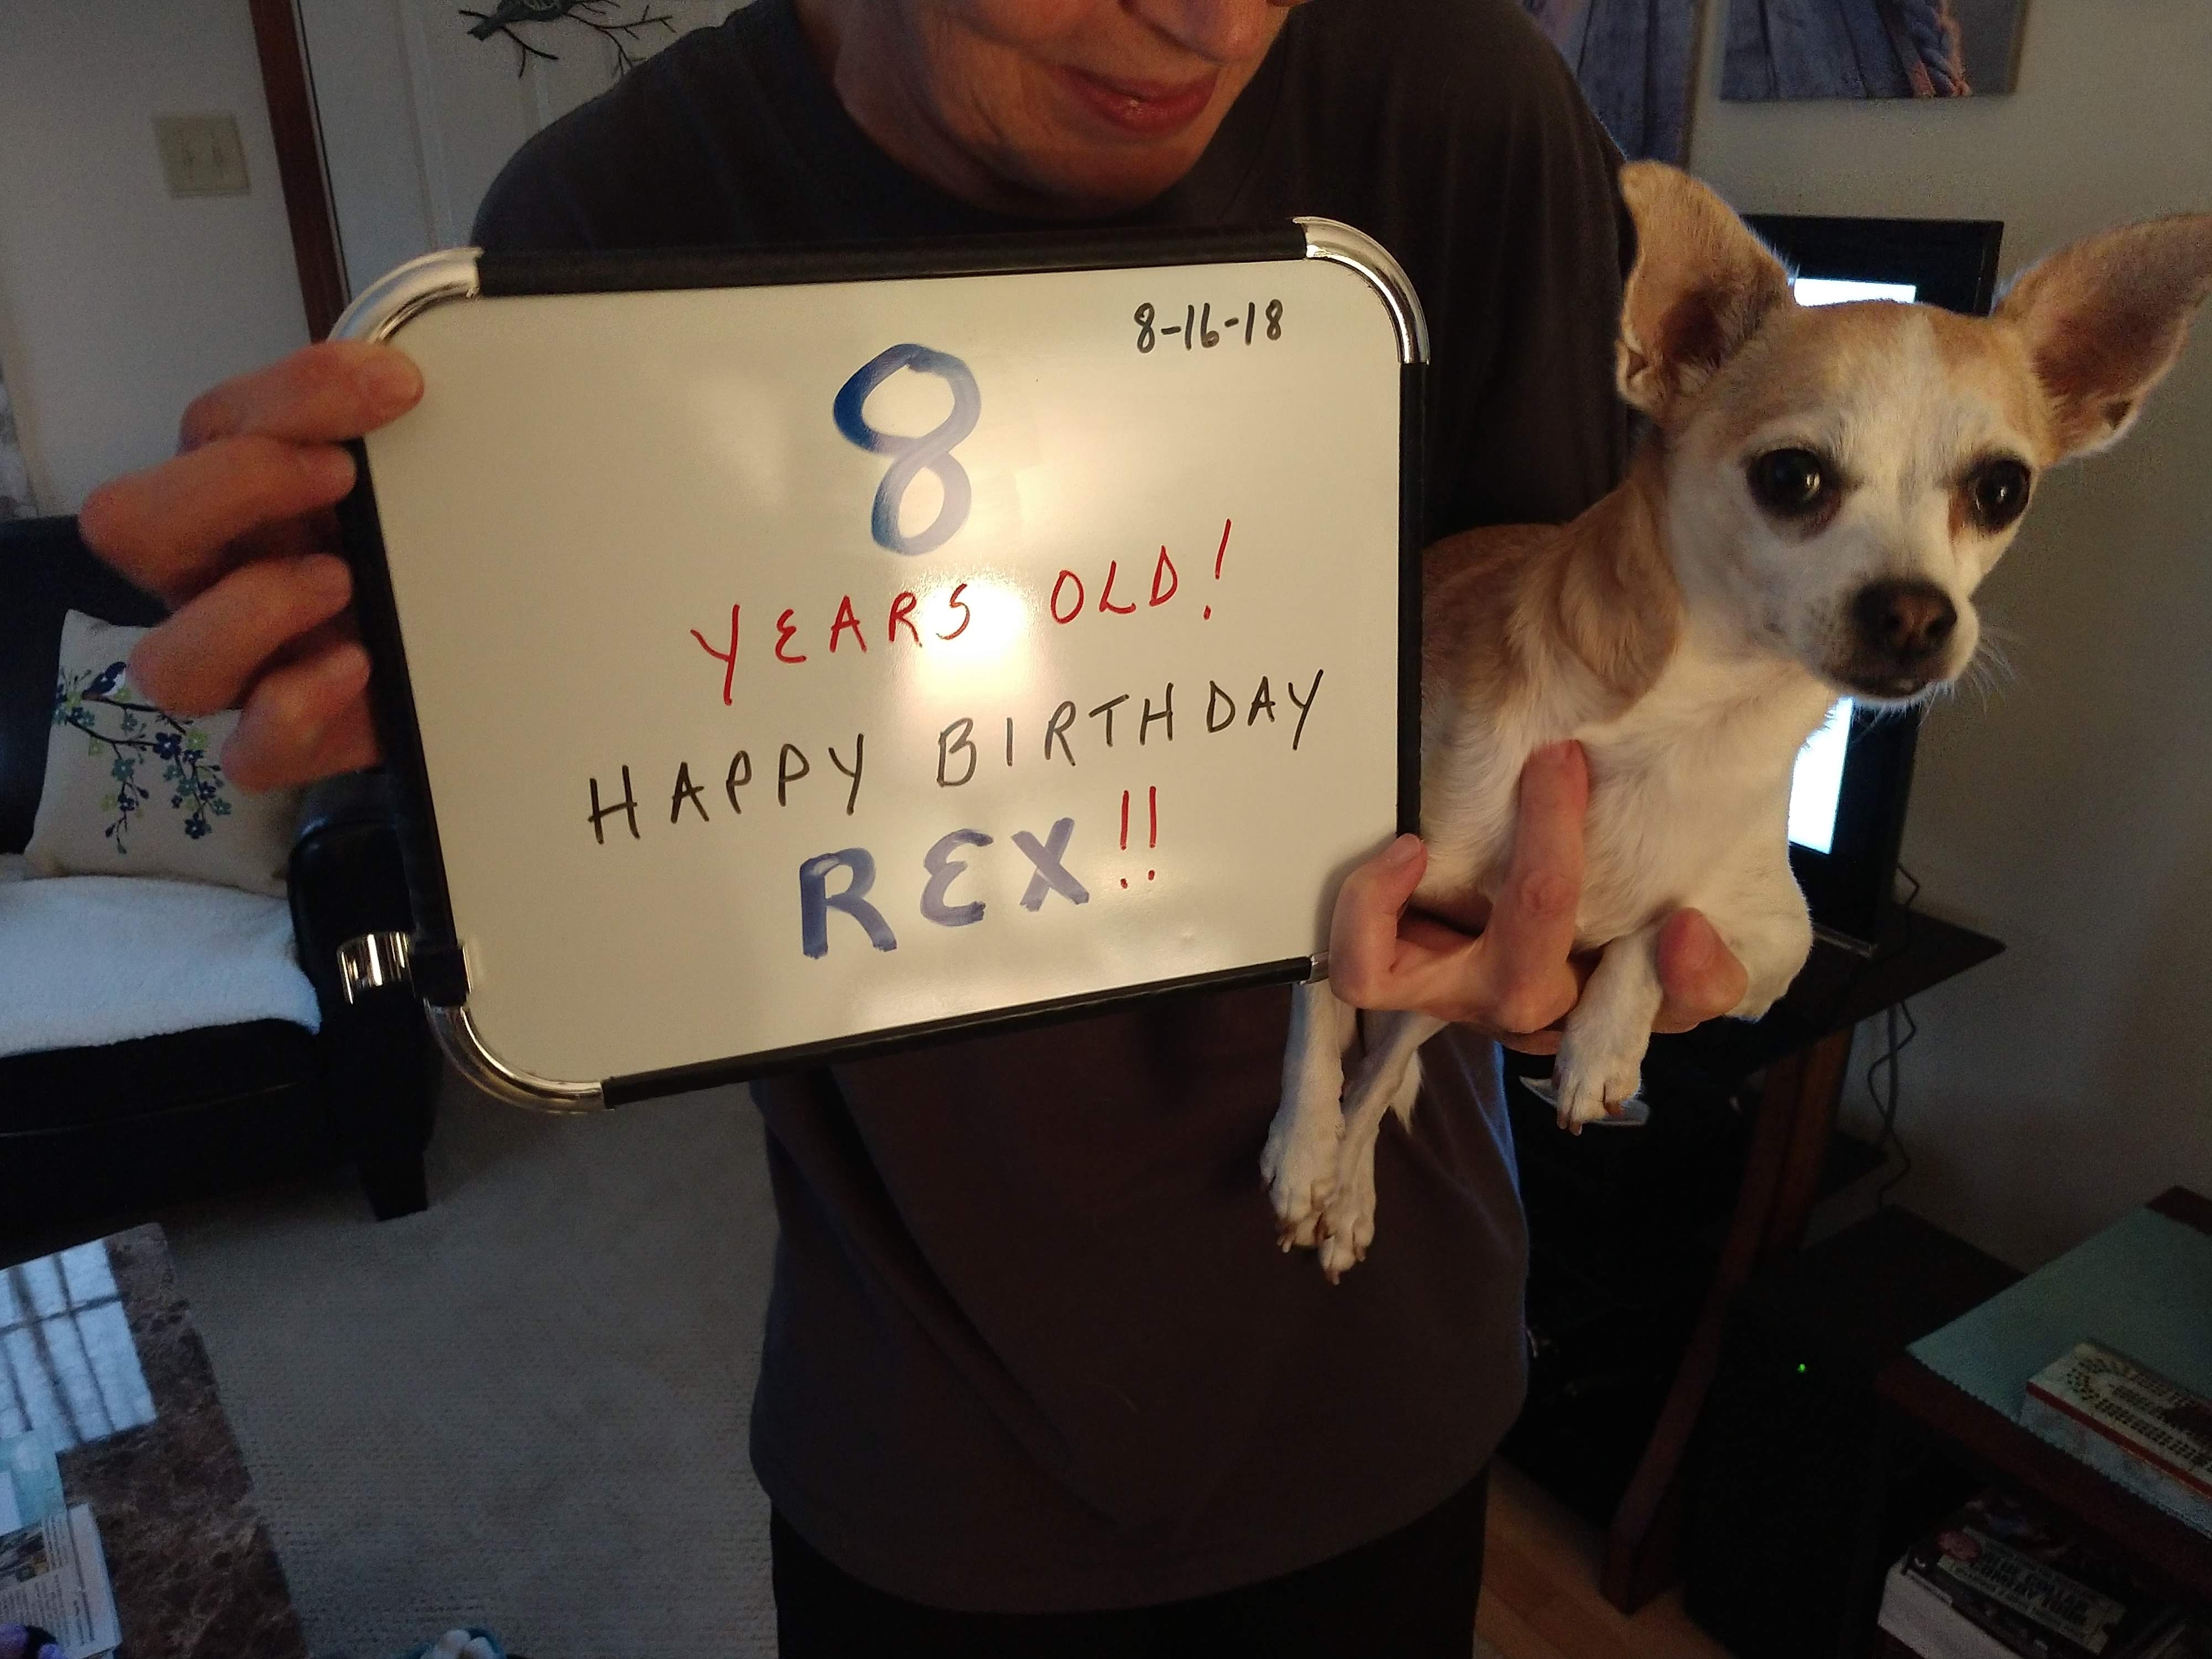 8-16-18
8
YEARS OLD!
HAPPY BIRTHDAY
REX!!